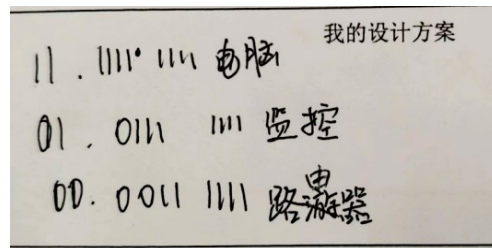 我的设计方案
11. 1111 1111 电脑
01. 0111 1111 监控
00. 0011 1111 路由器